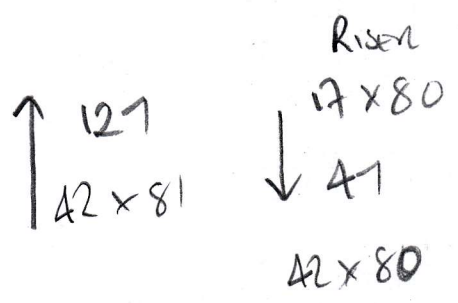 121
42 x 81
Riser
17 x 80
41
42 x 80